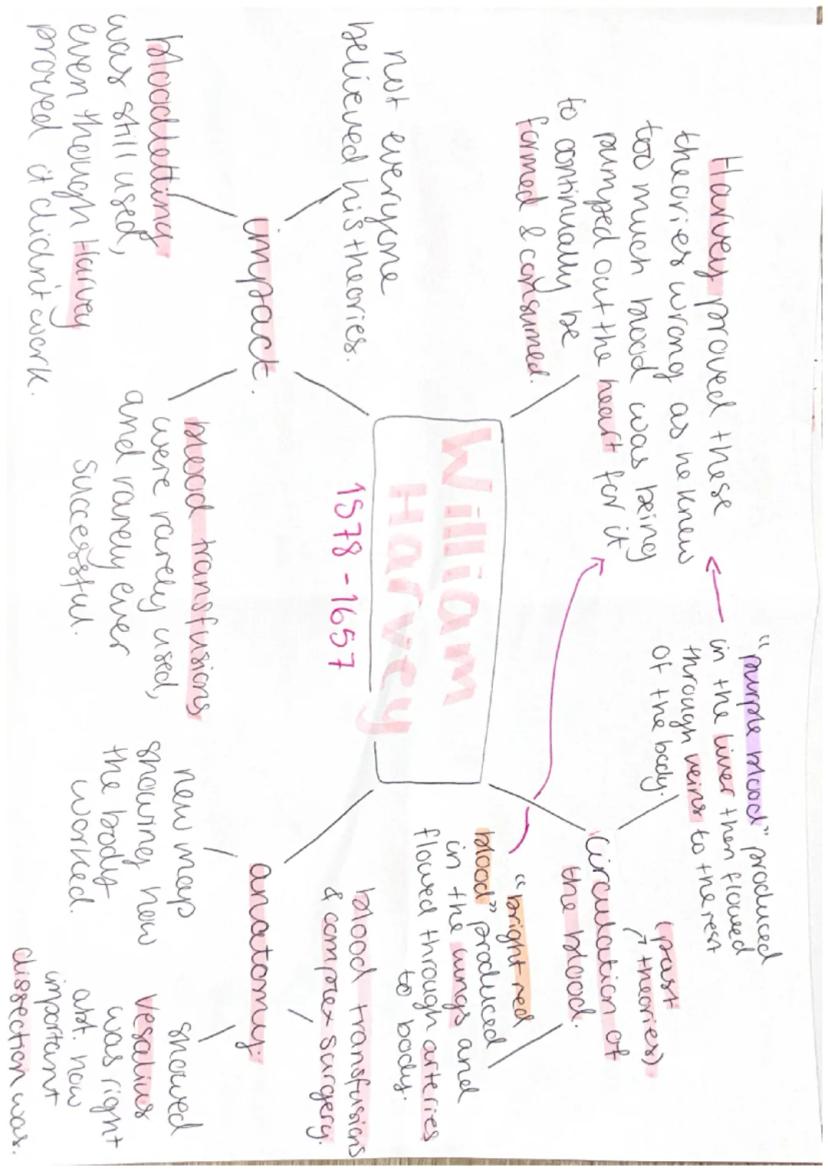 William
Harvey
1578 - 1657
Harvey proved these
theories wrong as he knew
too much blood was being
pumped out the heart for it
to continually be
formed & consumed.
"purple blood" produced
in the liver then flowed
through veins to the rest
of the body.
(past
theories)
circulation of
the blood.
"bright red
blood" produced
in the lungs and
flowed through arteries
to body.
not everyone
believed his theories.
impact.
bloodletting
was still used,
even though Harvey
proved it didn't work.
blood transfusions
were rarely used,
and rarely ever
successful.
anatomy.
blood transfusions
& complex surgery.
new map
showing how
the body
worked.
showed
Vesalius
was right
abt. how
important
dissection was.